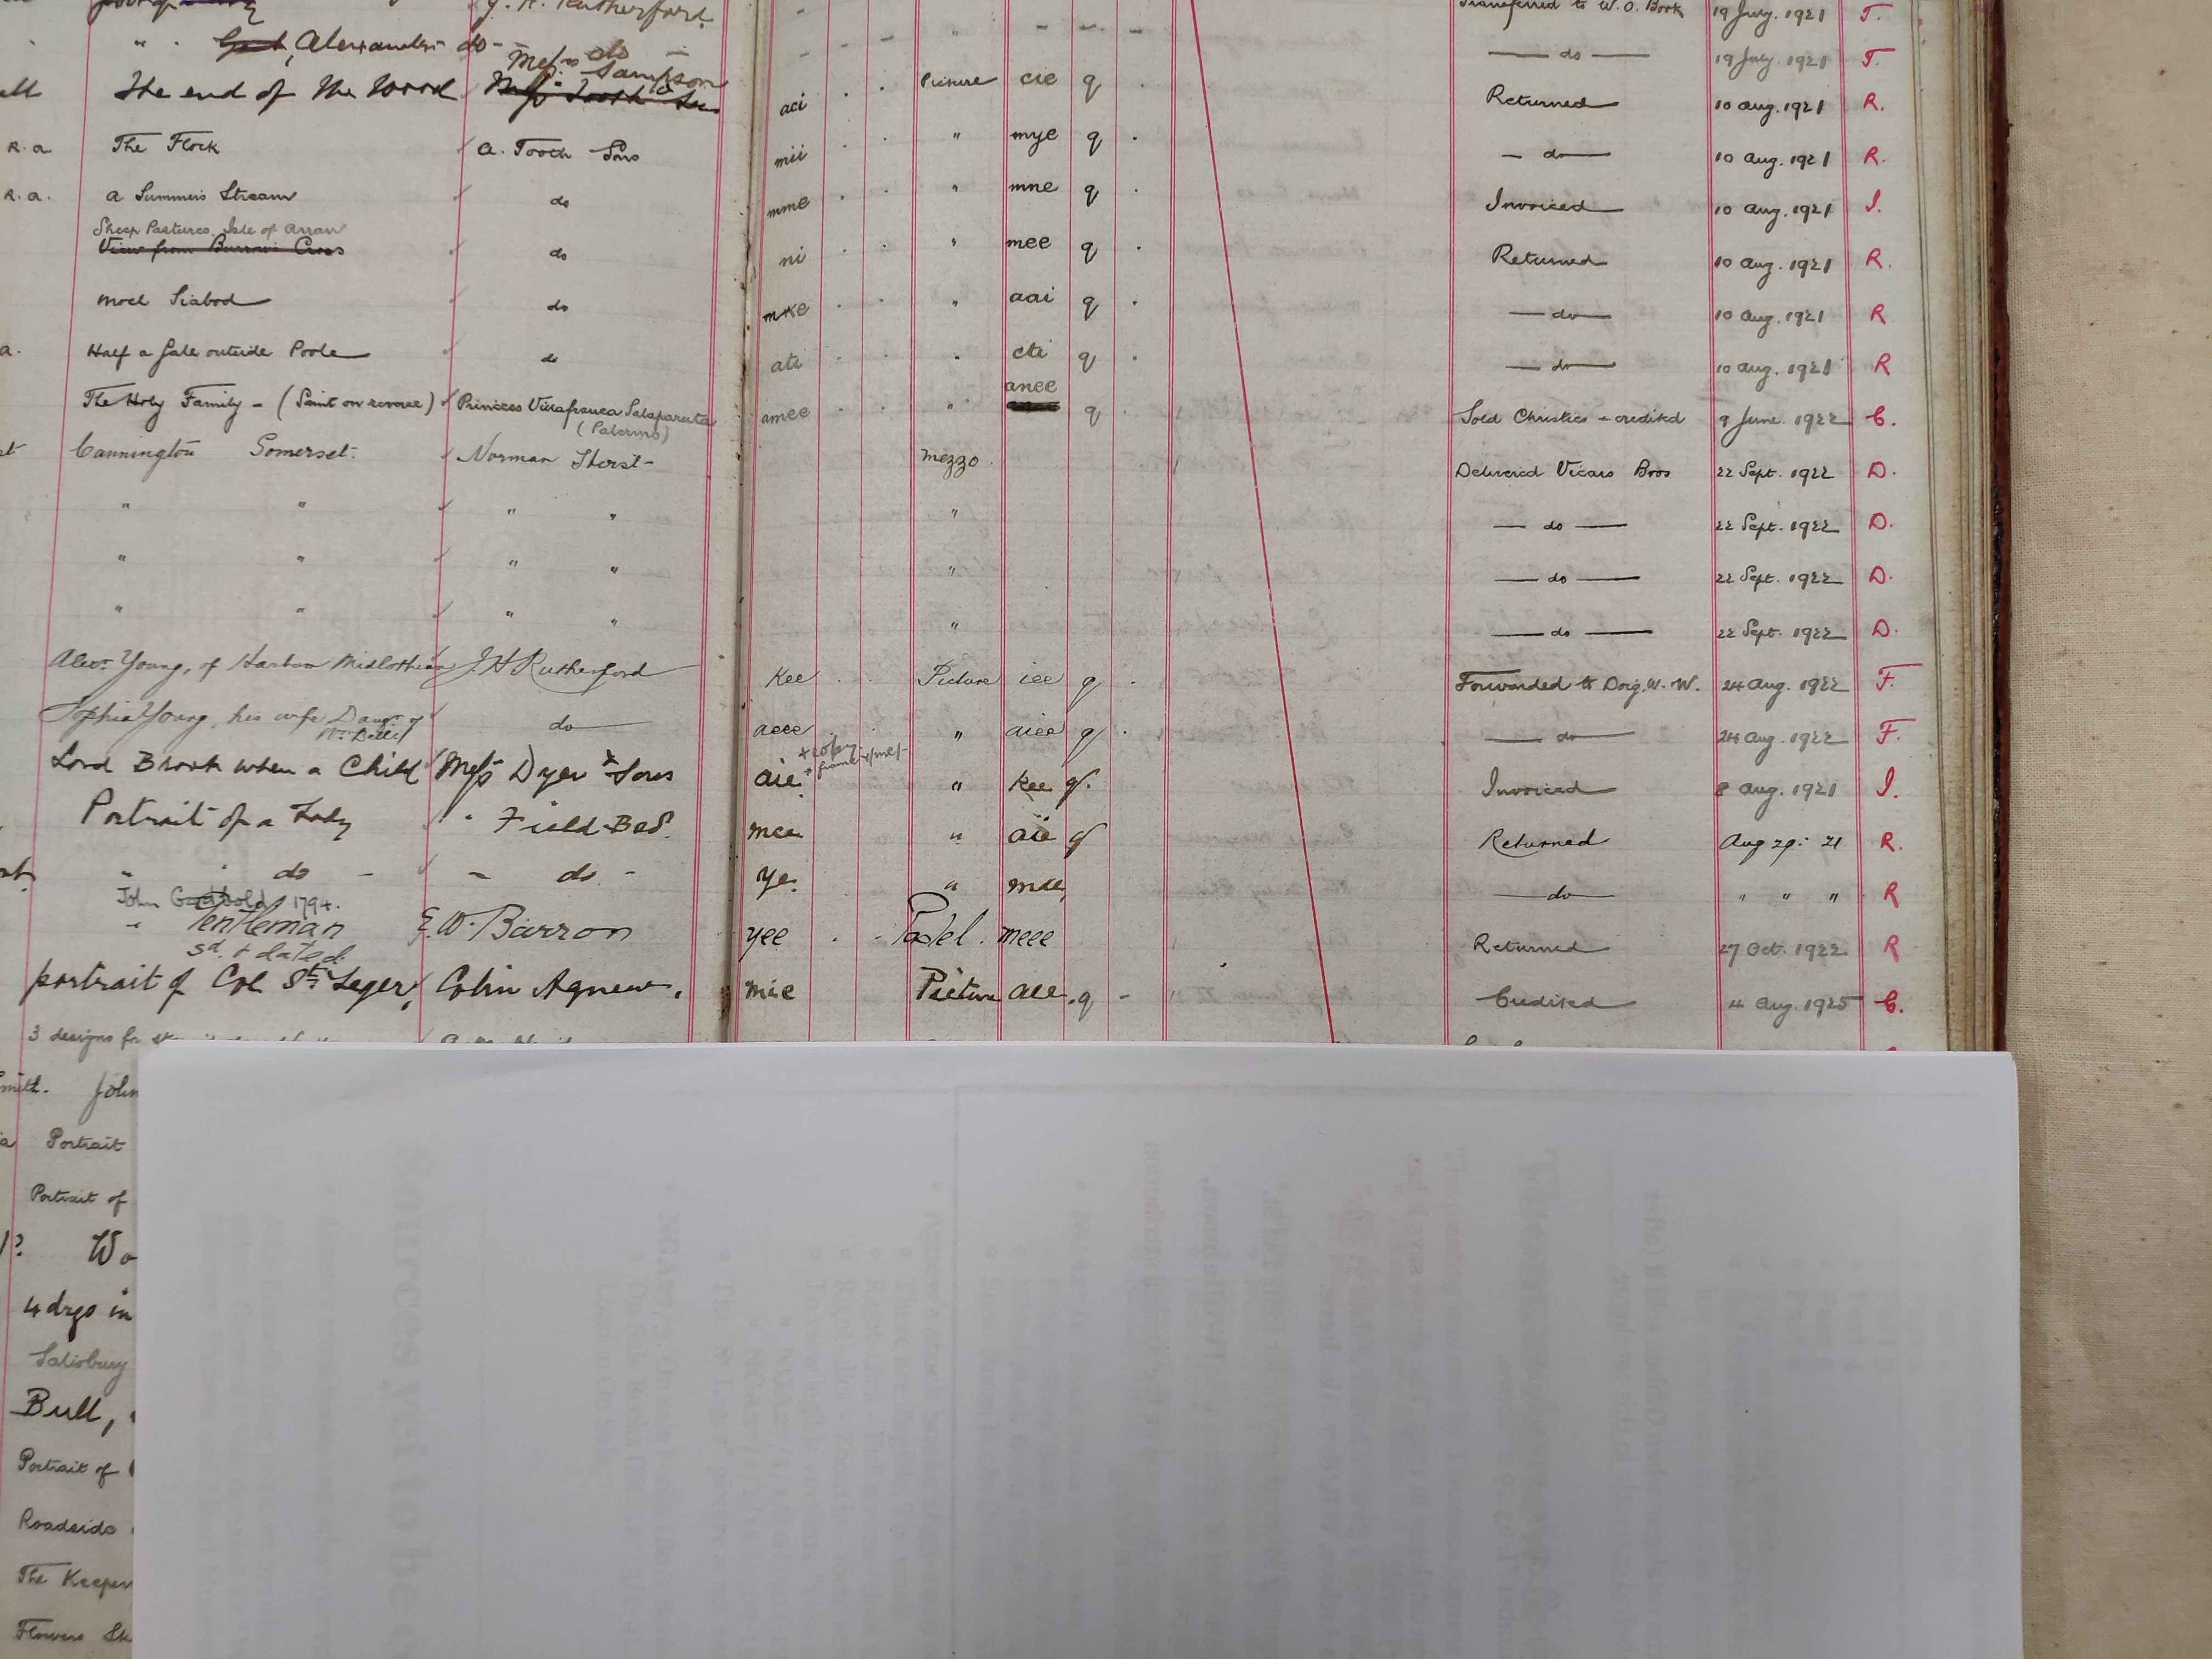 J. H. Rutherford. Transferred to W. O. Book 19 July. 1921 T.
" . Gent, Alexander do - do - " — do — 19 July. 1921 T.
Messrs Sampson
The end of the Wood aci Picture cie q Returned 10 Aug. 1921 R.
R. a The Flock A. Tooth Sons mii " mye q — do — 10 Aug. 1921 R.
R. a. A Summers Stream do mme " mne q Invoiced 10 Aug. 1921 I.
Sheep Pastures, Isle of Arran
View from Burrow Cross do ni " mee q Returned 10 Aug. 1921 R.
Moel Siabod do mke " aai q — do — 10 Aug. 1921 R
a. Half a Gale outside Poole do ati " cti q — do — 10 Aug. 1921 R
anee
The Holy Family - (Saint on reverse) Princess Villafranca Salaparuta amee " q Sold Christies - credited 9 June. 1922 C.
(Palermo)
Cannington Somerset. Norman Thorst- Mezzo Delivered Vicars Bros 22 Sept. 1922 D.
" " " " " — do — 22 Sept. 1922 D.
" " " " " — do — 22 Sept. 1922 D.
" " " " " — do — 22 Sept. 1922 D.
Alexr. Young, of Midlothian J. H Rutherford kee Picture iee q Forwarded to Doig, W. W. 24 Aug. 1922 F.
Sophia Young, his wife Daur. of do aeee " aiee q — do — 24 Aug. 1922 F.
+ copy
Lord Brook when a Child Messrs Dyer & Sons aie " kee q. Invoiced 8 Aug. 1921 I.
Portrait of a Lady " Field-Bed. mee " aie q Returned Aug 29: 21 R.
" " do - - do. - ye. " mke — do — " " " R
John 1794.
" Gentleman E. W. Barron yee Pastel. meee Returned 27 Oct. 1922 R
sd. & dated
portrait of Col St. Leger, Colin Agnew. mie Picture aee. q - Credited 4 Aug. 1925 C.
3 designs for
John
Portrait
Portrait of
Wo
4 drgs in
Salisbury
Bull,
Portrait of
Roadside
The Keepers
Flowers Sk